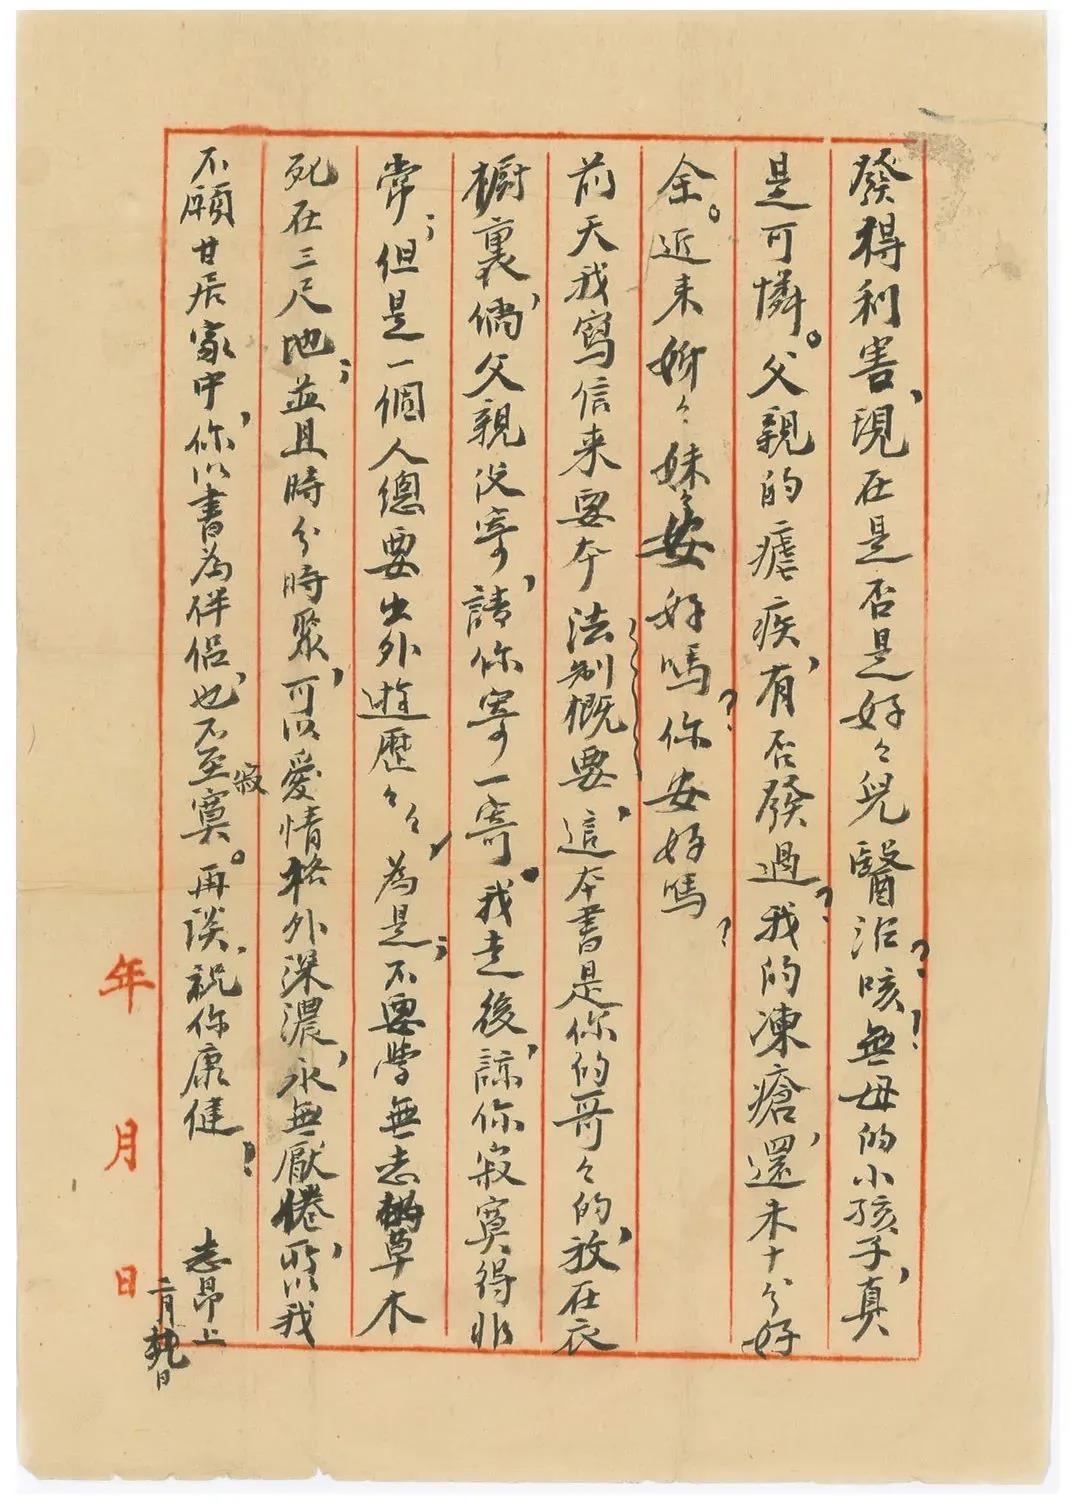 發得利害,現在是否是好々兒醫治?咳!無母的小孩子,真
是可憐。父親的瘧疾,有否發過?我的凍瘡,還未十分好
全。近来妳々妹々安好嗎?你安好嗎?
前天我寫信来要本法制概要,這本書是你的哥々的,放在衣
橱裏,倘父親没寄,請你寄一寄。我走後,諒你寂寞得非
常;但是一個人總要出外遊歷々々,為是;不要學無志的草木
死在三尺地;並且時分時聚,可以愛情格外深濃,永無厭倦,所以我
不願甘居家中,你以書為伴侣也,不至寂寞。再談,祝你康健!
志昂上
二月 日
年 月 日